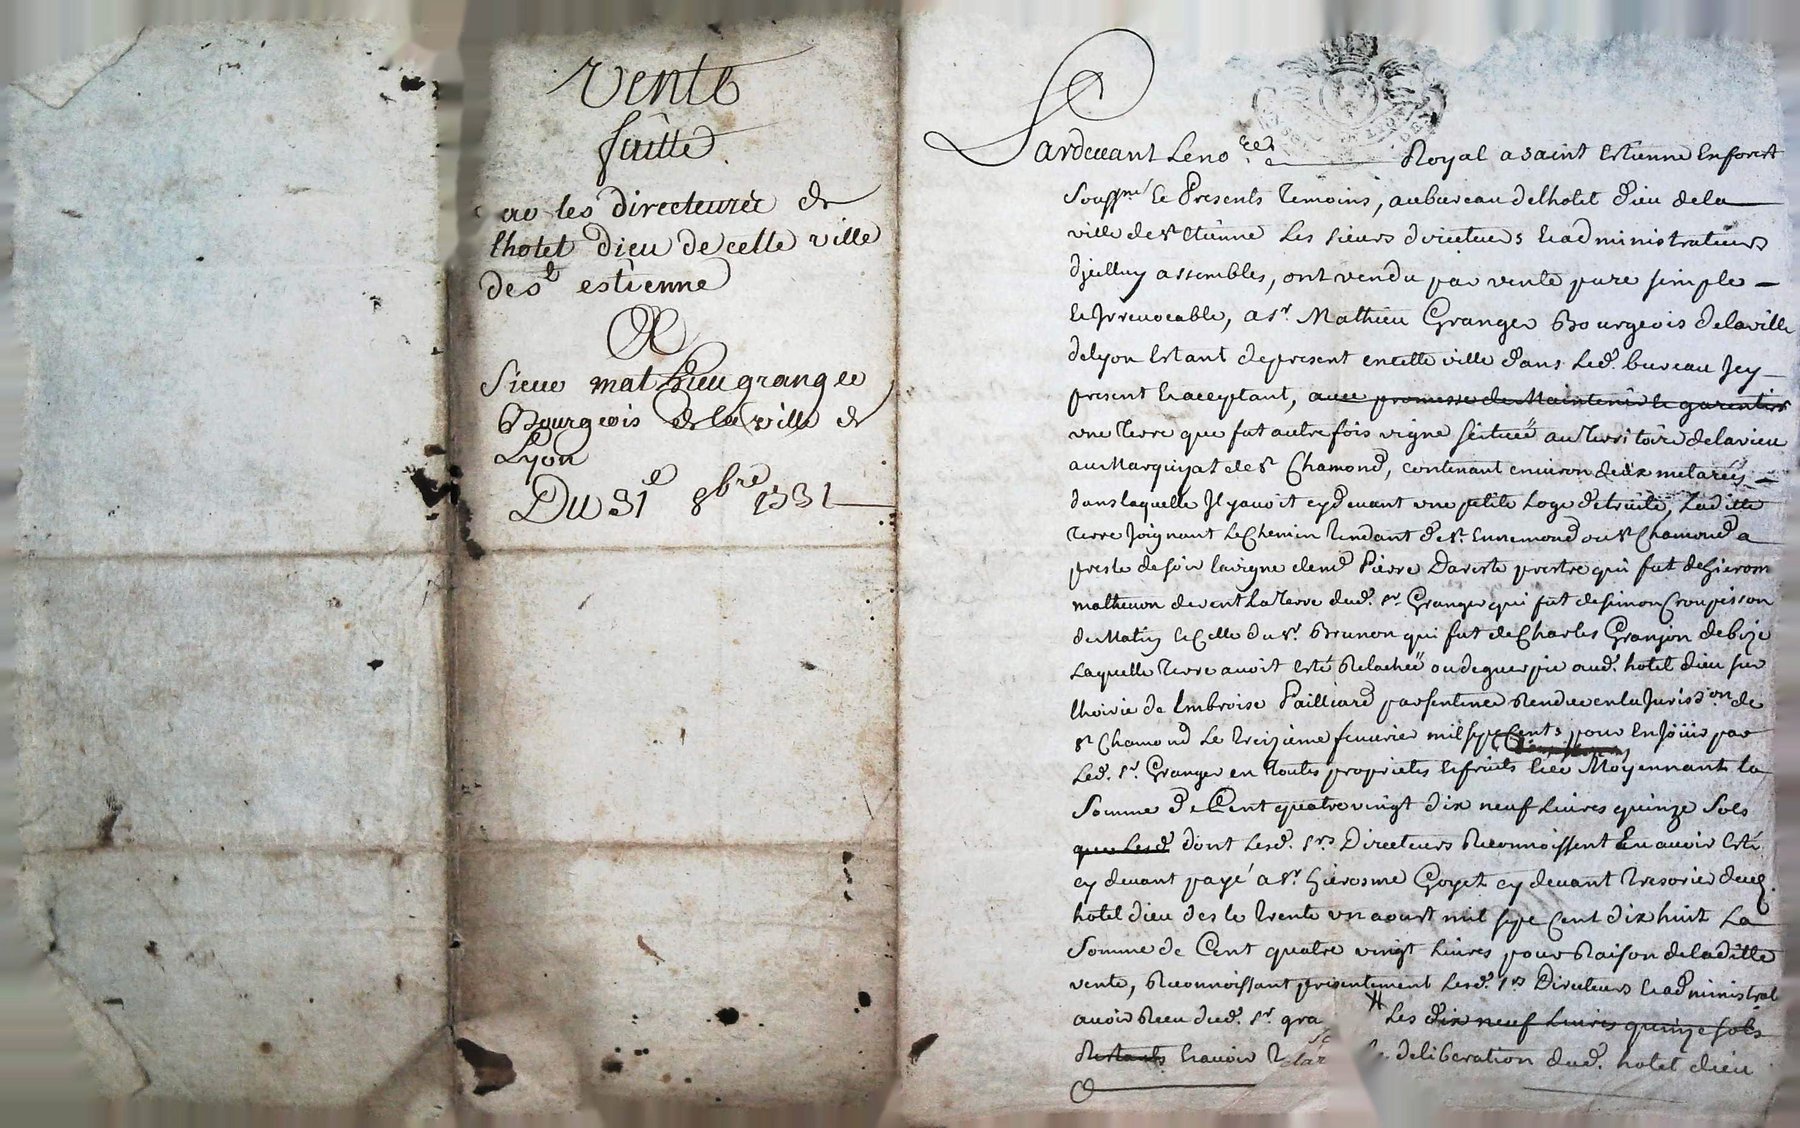 Vente
faitte
les directeurs de
lhotel dieu de cette ville
de st estienne
A
Sieur mathieu granger
Bourgeois de la ville de
Lyon
Du 31e 8bre 1731
Pardevant Le no.re Royal a saint Estienne En forest
Soussné Et Presents temoins, au bureau de lhotel dieu de la
ville de st Etienne Les sieurs directeurs Et administrateurs
dicelluy assembles, ont vendu par vente pure simple
Et Irrevocable, a sr. Mathieu Granger Bourgeois de la ville
de lyon Estant de present en cette ville dans Led. bureau Icy
present Et acceptant, avec promesse de Maintenir Et garentir
une terre que fut autrefois vigne scituée au territoire de la vieu
au Marquizat de st Chamond, contenant environ deux metarées
dans laquelle Il y avoit cydevant une petite Loge detruite, Laditte
terre Joignant Le Chemin tendant de st. Ennemond ou st Chamond a
de soir la vigne de mre Pierre Dareste prestre qui fut de hierom
matheuon de vent La terre dud. sr Granger qui fut de simon Croupisson
de Matin Et Celle du sr. Brunon qui fut de Charles Granjon de bize
Laquelle terre avoit esté Relachée ou deguerpie aud. hotel dieu sur
lhoirie de Ambroise Pailliard par sentence Rendue en la Jurisd.on de
st Chamond Le treizieme fevrier mil sept Cents pour En Joüir par
Led. sr. Granger en toutes proprietes Et fruits Moyennant la
Somme de Cent quatre vingt dix neuf Livres quinze Sols
que Lesd dont Lesd. srs Directeurs Reconnoissent En avoir Esté
cy devant payé a sr. hierosme Goyet cy devant tresorier dud.
hotel dieu des le trente un aoust mil sept Cent dix huit La
Somme de Cent quatre vingt Livres pour Raison de laditte
vente, Reconnoissant presentement Lesd. srs Directeurs Et administrat
avoir Reçu dud. sr. gra Les dix neuf Livres quinze sols
Restants Et avoir deliberation dud. hotel dieu